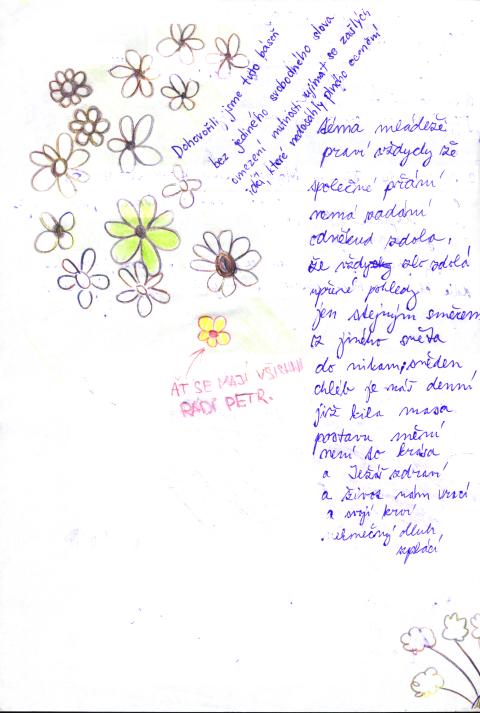 Dohovořili jsme tuto báseň
bez jediného svobodného slova
omezeni nutností vyjímat se zašlých
idejí, které nedosáhly plného ocenění
Téma mládeže
praví vždycky že
společné přání
nemá zadání
odněkud zdola,
že vždy zlo zdolá
upřené pohledy
jen stejným směrem
z jiného světa
do nikam; sněden
chléb je náš denní
již kila masa
postavu mění
není to krása
a Ježíš zdraví
a život nám vrací
a svojí krví
dluh,
splácí,
AŤ SE MAJÍ VŠICHNI
RÁDI PETR.